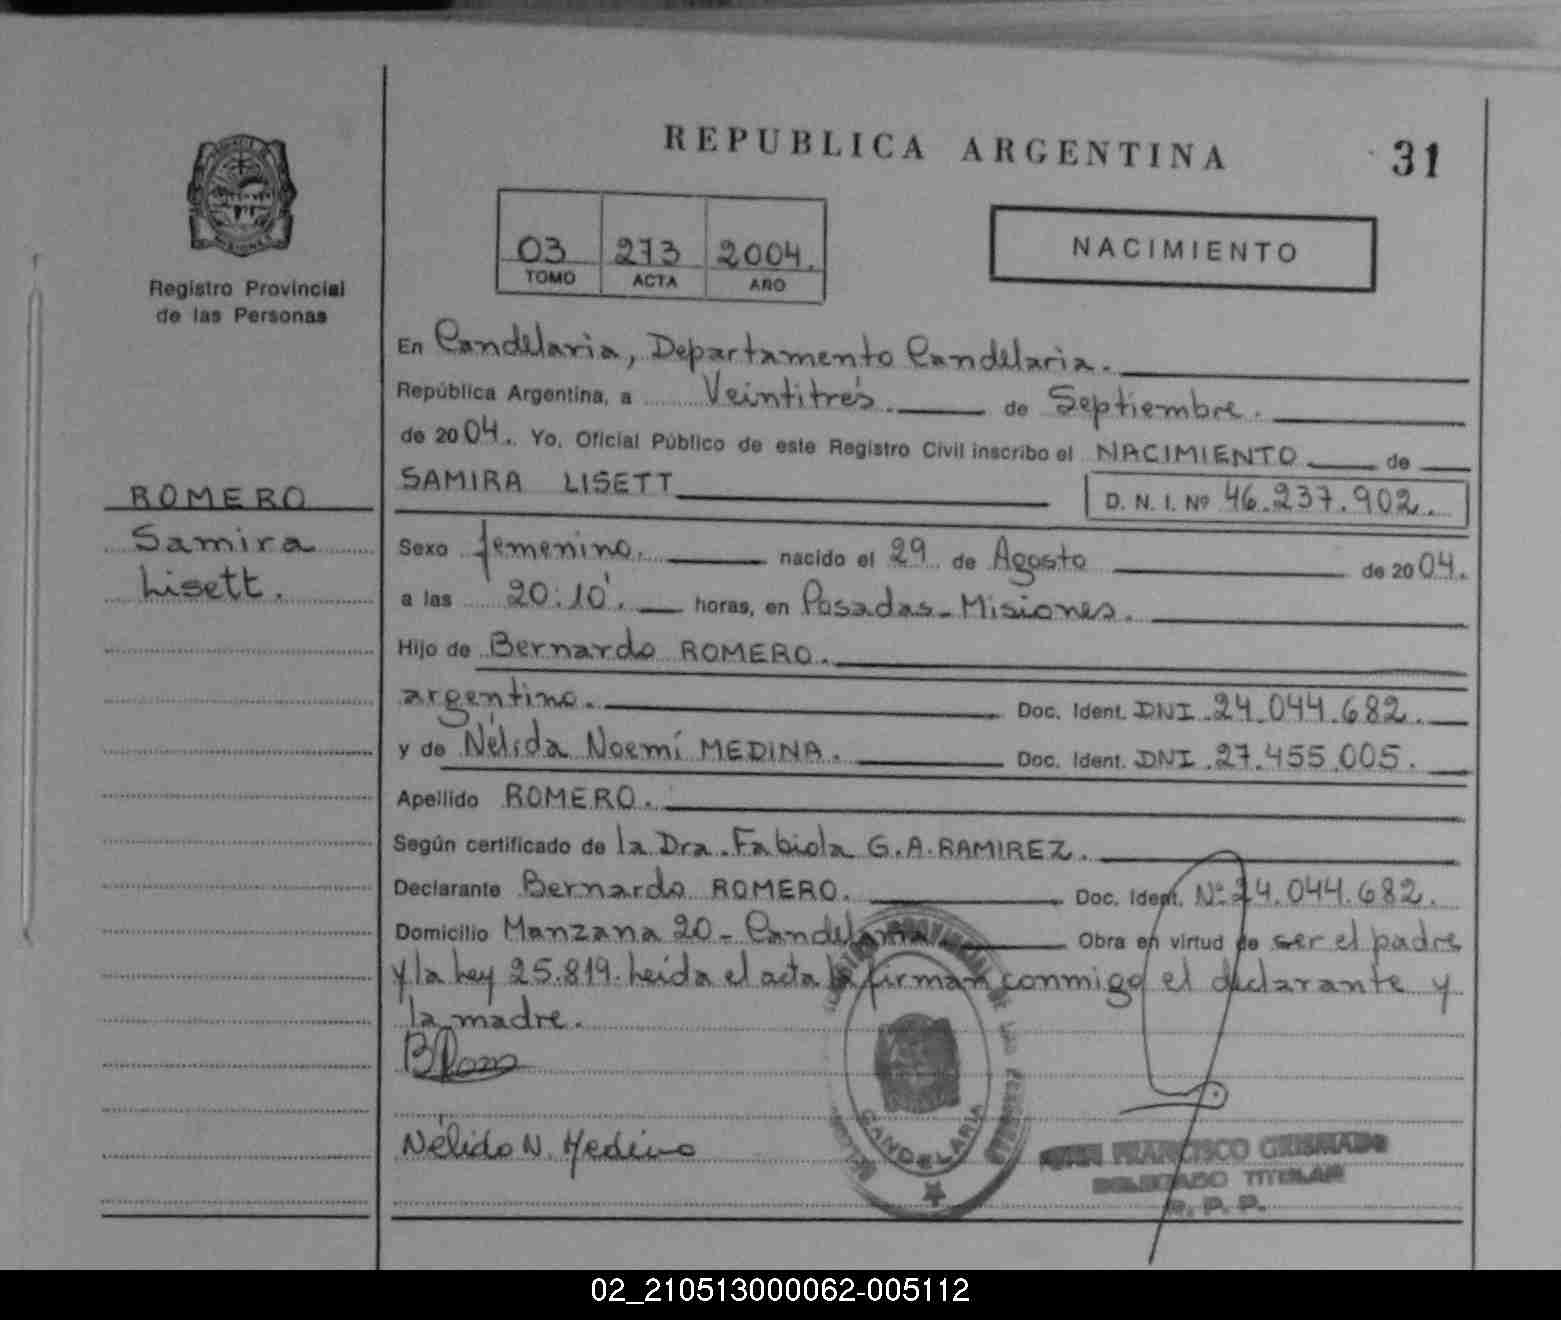 REPUBLICA ARGENTINA
31
03 273 2004.
TOMO ACTA AÑO
NACIMIENTO
Registro Provincial
de las Personas
ROMERO
Samira
Lisett.
En Candelaria, Departamento Candelaria.
República Argentina, a Veintitrés. de Septiembre.
de 2004. Yo, Oficial Público de este Registro Civil inscribo el NACIMIENTO de
SAMIRA LISETT D. N. I. Nº 46.237.902.
Sexo femenino. nacido el 29 de Agosto de 2004.
a las 20:10'. horas, en Posadas-Misiones.
Hijo de Bernardo ROMERO.
argentino. Doc. Ident. DNI.24.044.682.
y de Nélida Noemí MEDINA. Doc. Ident. DNI.27.455.005.
Apellido ROMERO.
Según certificado de la Dra. Fabiola G.A.RAMIREZ.
Declarante Bernardo ROMERO. Doc. Ident. Nº24.044.682.
Domicilio Manzana 20- Candelaria Obra en virtud de ser el padre
y la Ley 25.819. Leída el acta la firman conmigo el declarante y
la madre.
Nélida N. Medina
CANDELARIA
FRANCISCO
DELEGADO TITULAR
R. P. P.
02_210513000062-005112